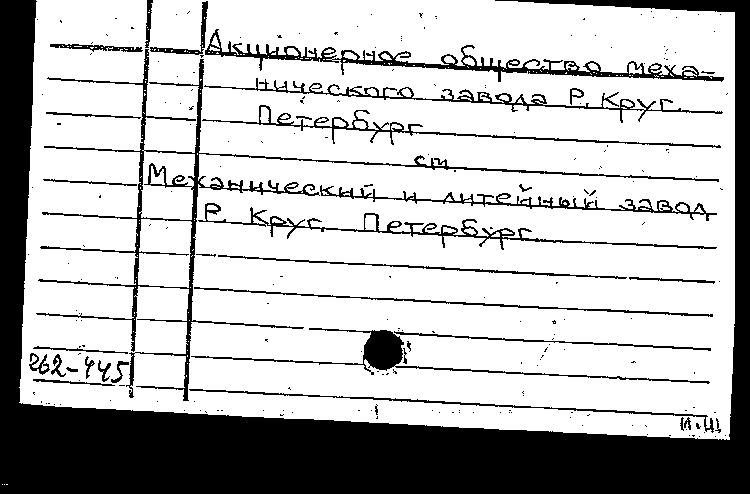 Акционерное общество меха-
нического завода Р. Круг.
Петербург
см.
Механический и литейный завод
Р. Круг. Петербург
262-445